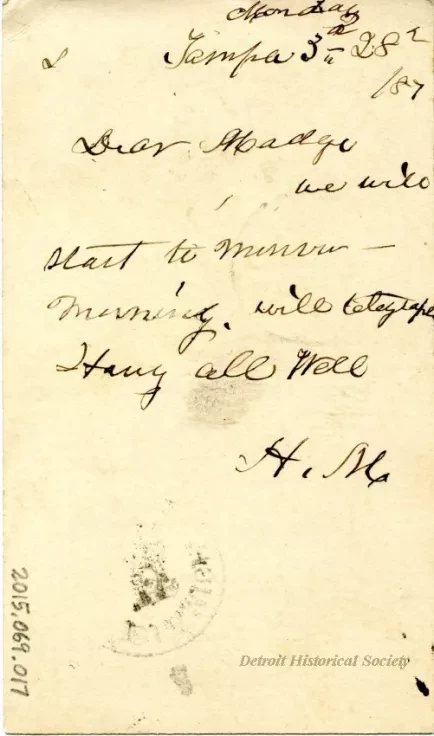 Monday
Tampa 3 28
/87
Dear Madge
we will
start to Morrow —
Morning. will telegraph
Hang all Well
H. M.
2015.069.017
Detroit Historical Society